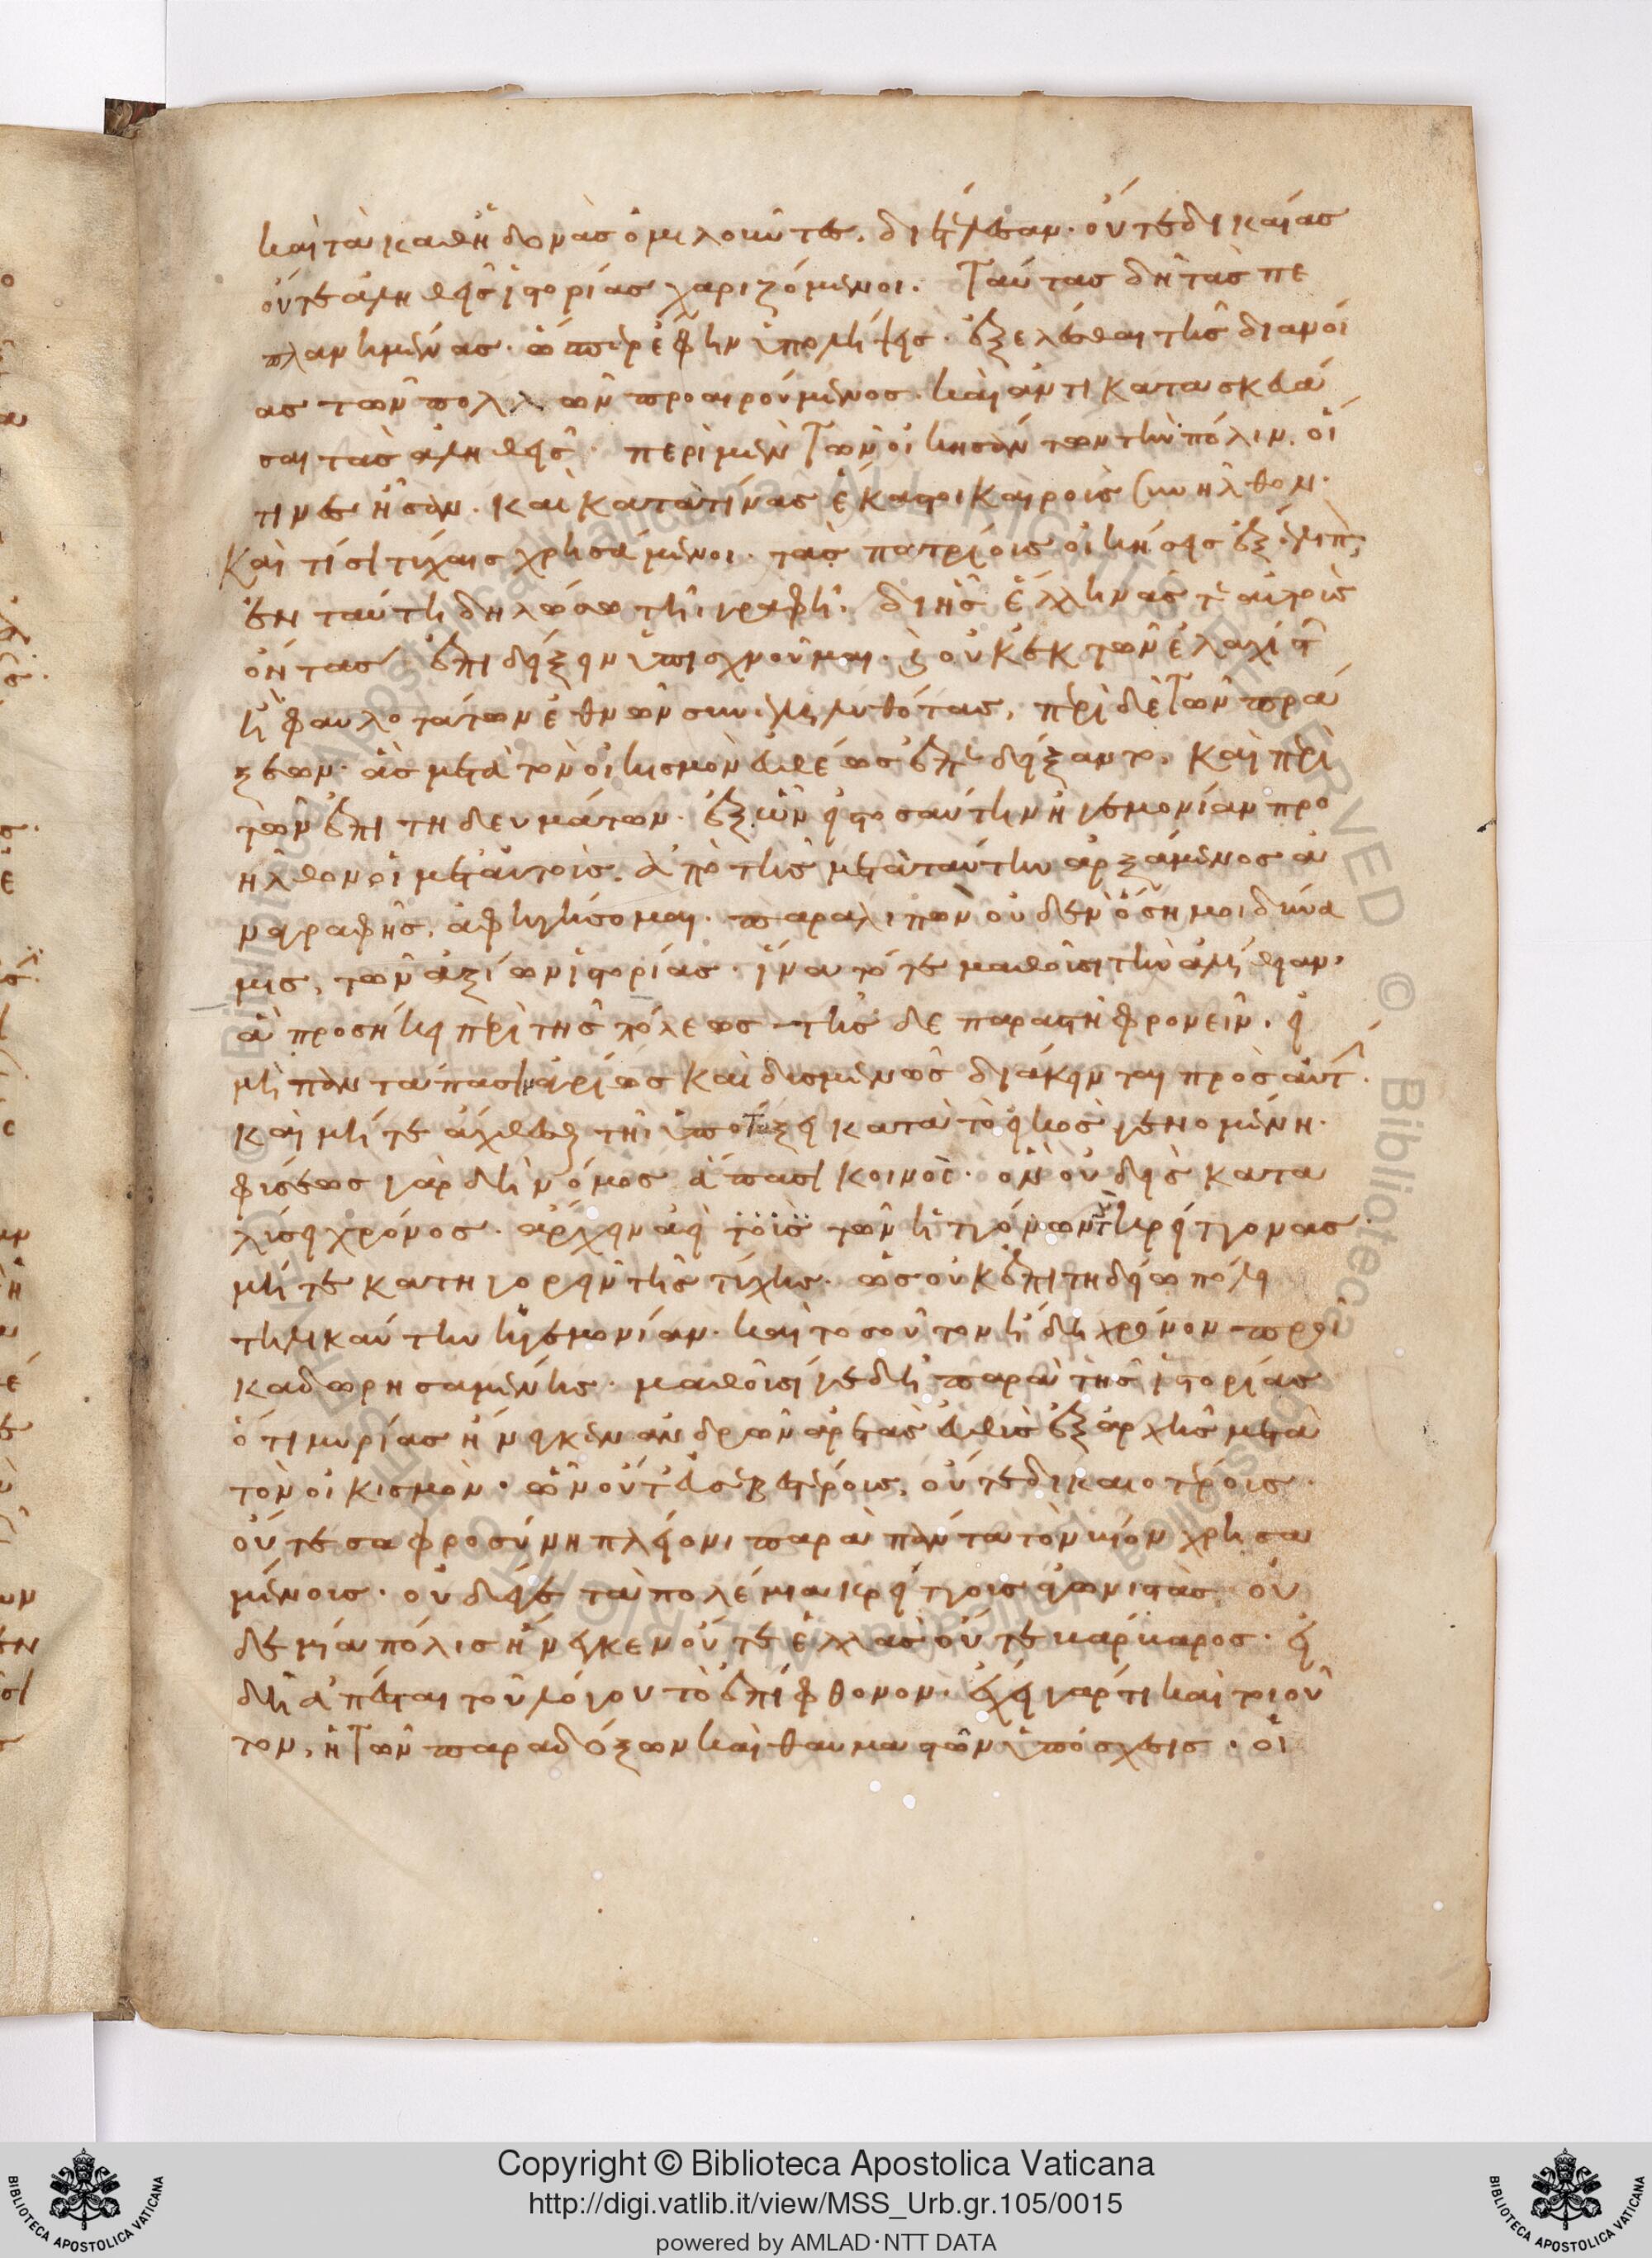 καὶ τὰ καθ' ἡδονὰς ὁμιλοῦντες διετέλεσαν· οὔτε δικαίας
οὔτε ἀληθεῖς ἱστορίας χαριζόμενοι. Ταύτας δὴ τὰς πε
πλανημένας· ὥσπερ ἔφην ὑπολήψεις· ἐξελέσθαι τῆς διανοί
ας τῶν πολλῶν προαιρούμενος· καὶ ἀντικατασκευά
σαι τὰς ἀληθεῖς· περὶ μὲν τῶν οἰκησάντων τὴν πόλιν, οἵ
τινες ἦσαν· καὶ κατὰ τίνας ἕκαστοι καιροὺς συνῆλθον·
καὶ τίσι τύχαις χρησάμενοι· τὰς πατρίους οἰκήσεις ἐξέλιπ
ἐν ταύτη δηλώσω τῆι γραφῆ· δι ἧς ἕλληνάς τε αὐτοὺς
ὄντας ἐπιδείξειν ὑπισχνοῦμαι· καὶ οὐκ ἐκ τῶν ἐλαχίστ
ἢ φαυλοτάτων ἐθνῶν συνεληλυθότας, περὶ δὲ τῶν πρά
ξεων· ἃς μετὰ τὸν οἰκισμὸν εὐθέως ἐπεδείξαντο. καὶ περὶ
τῶν ἐπιτηδευμάτων· ἐξ ὧν εἰς τοσαύτην ἡγεμονίαν προ
ῆλθον οἱ μετ' αὐτοὺς. ἀπὸ τῆς μετὰ ταύτην ἀρξάμενος ἀ
ναγραφῆς, ἀφηγήσομαι· παραλιπὼν οὐδὲν ὅση μοι δύνα
μις, τῶν ἀξίων ἱστορίας· ἵνα τό τε μαθοῦσι τὴν ἀλήθειαν·
ἃ προσήκει περὶ τῆς πόλεως τῆσδε παραστῆ φρονεῖν. εἰ
μὴ παντάπασιν ἀγρίως καὶ δυσμενῶς διάκεινται πρὸς αὐτ
καὶ μήτε ἄχθεσθαι τῆι ὑποτάξει κατὰ τὸ εἰκὸς γενομένη·
φύσεως γὰρ δὴ νόμος ἅπασι κοινὸς· ὃν οὐδεὶς κατα
λύσει χρόνος· ἄρχειν ἀεὶ τοὺς τῶν ἡττόνων τοὺς κρείττονας·
μήτε κατηγορεῖν τῆς τύχης· ὡς οὐκ ἐπιτηδείω πόλει
τηλικαύτην ἡγεμονίαν· καὶ τοσοῦτον ἤδη χρόνον προῖ
κα δωρησαμένης· μαθοῦσί γε δὴ παρὰ τῆς ἱστορίας
ὅτι μυρίας ἤνεγκεν ἀνδρῶν ἀρετὰς εὐθὺς ἐξ ἀρχῆς μετὰ
τὸν οἰκισμὸν· ὧν οὔτ' εὐσεβεστέρους, οὔτε δικαιοτέρους·
οὔτε σωφροσύνη πλείονι παρὰ πάντα τὸν βίον χρησα
μένους· οὐδέ γε τὰ πολέμια κρείττους ἀγωνιστὰς οὐ
δεμία πόλις ἤνεγκεν οὔτε ἑλλὰς οὔτε βάρβαρος· εἰ
δὴ ἀπέσται τοῦ λόγου τὸ ἐπίφθονον· ἔχει γάρ τι καὶ τοιοῦ
τον, ἡ τῶν παραδόξων καὶ θαυμαστῶν ὑπόσχεσις· οἱ
Copyright © Biblioteca Apostolica Vaticana
http://digi.vatlib.it/view/MSS_Urb.gr.105/0015
powered by AMLAD·NTT DATA
BIBLIOTECA APOSTOLICA VATICANA
BIBLIOTECA APOSTOLICA VATICANA